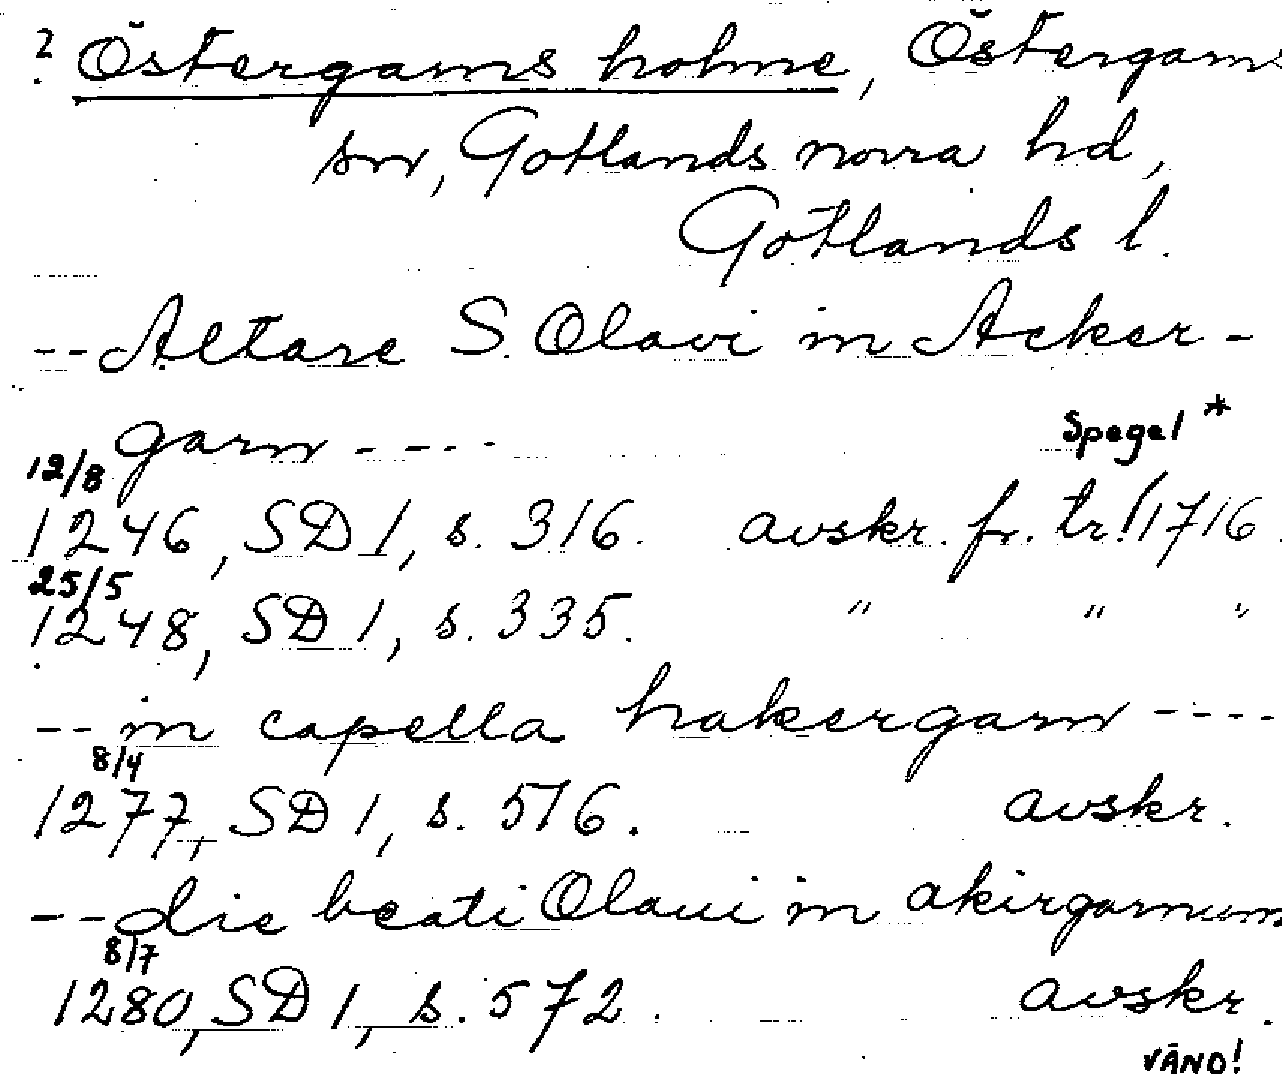 ? Östergams holme, Östergams
sn, Gotlands norra hd,
Gotlands l.
-- Altare S. Olavi in Acker-
garn ----
Spegel *
12/8
1246, SD 1, s. 316. avskr. fr. tr.! 1716.
25/5
1248, SD 1, s. 335. " " "
-- in capella hakergarn ----
8/4
1277, SD 1, s. 576. avskr.
-- die beati Olaui in akirgarnum
8/7
1280, SD 1, s. 572. avskr.
VÄND!